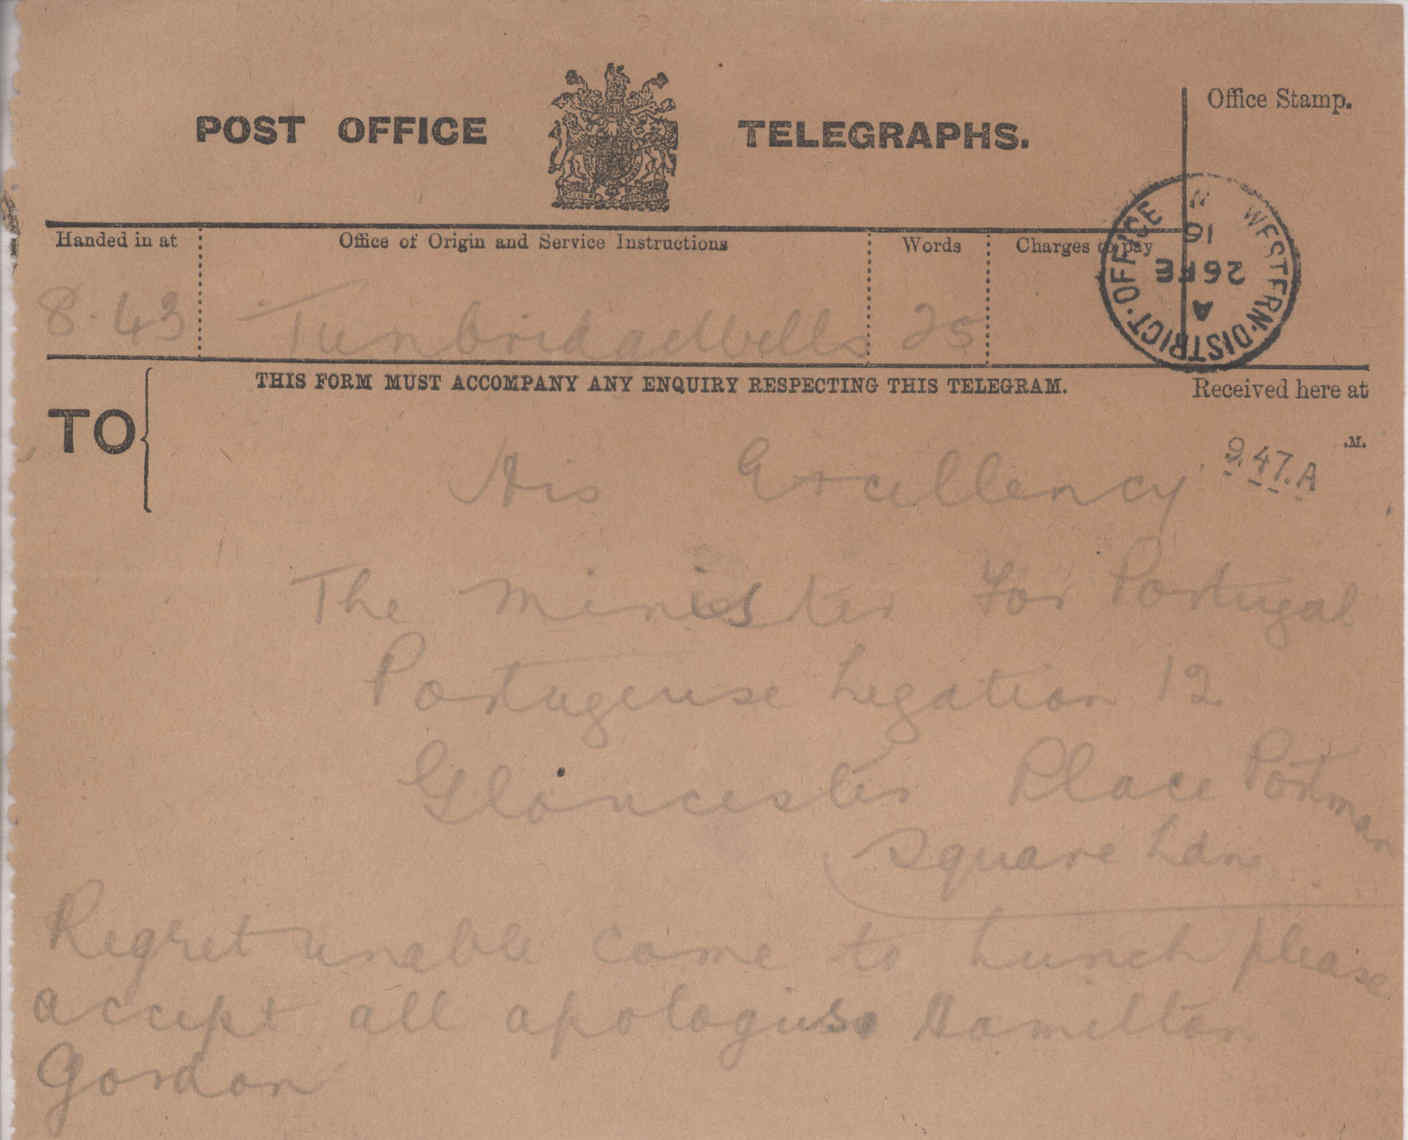 POST OFFICE TELEGRAPHS.
Office Stamp.
WESTERN·DISTRICT·OFFICE W
A
26 FE
16
Handed in at
Office of Origin and Service Instructions
Words
Charges to pay
8.43 Tunbridge Wells 25
THIS FORM MUST ACCOMPANY ANY ENQUIRY RESPECTING THIS TELEGRAM.
Received here at
TO
.M.
9.47.A
His Excellency
The Minister For Portugal
Portugeuse Legation 12
Gloucester Place Portman
Square Ldn
Regret unable come to Lunch please
accept all apologies Hamilton
Gordon